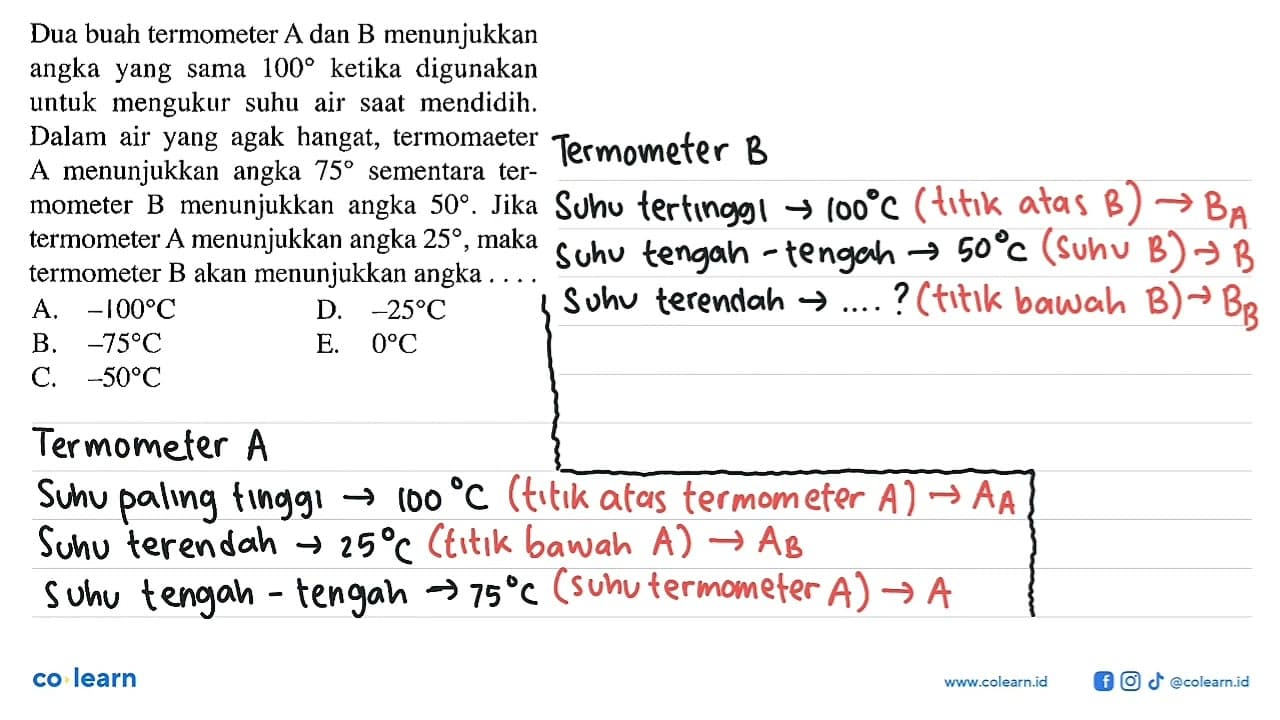 Dua buah termometer A dan B menunjukkan
angka yang sama 100° ketika digunakan
untuk mengukur suhu air saat mendidih.
Dalam air yang agak hangat, termomaeter
A menunjukkan angka 75° sementara ter-
mometer B menunjukkan angka 50°. Jika
termometer A menunjukkan angka 25°, maka
termometer B akan menunjukkan angka . . . .
A. –100°C D. –25°C
B. –75°C E. 0°C
C. –50°C
Termometer B
Suhu tertinggi → 100°C (titik atas B) → B_A
Suhu tengah - tengah → 50°C (Suhu B) → B
Suhu terendah → .... ? (titik bawah B) → B_B
Termometer A
Suhu paling tinggi → 100°C (titik atas termometer A) → A_A
Suhu terendah → 25°C (titik bawah A) → A_B
Suhu tengah - tengah → 75°C (suhu termometer A) → A
co learn
www.colearn.id
@colearn.id